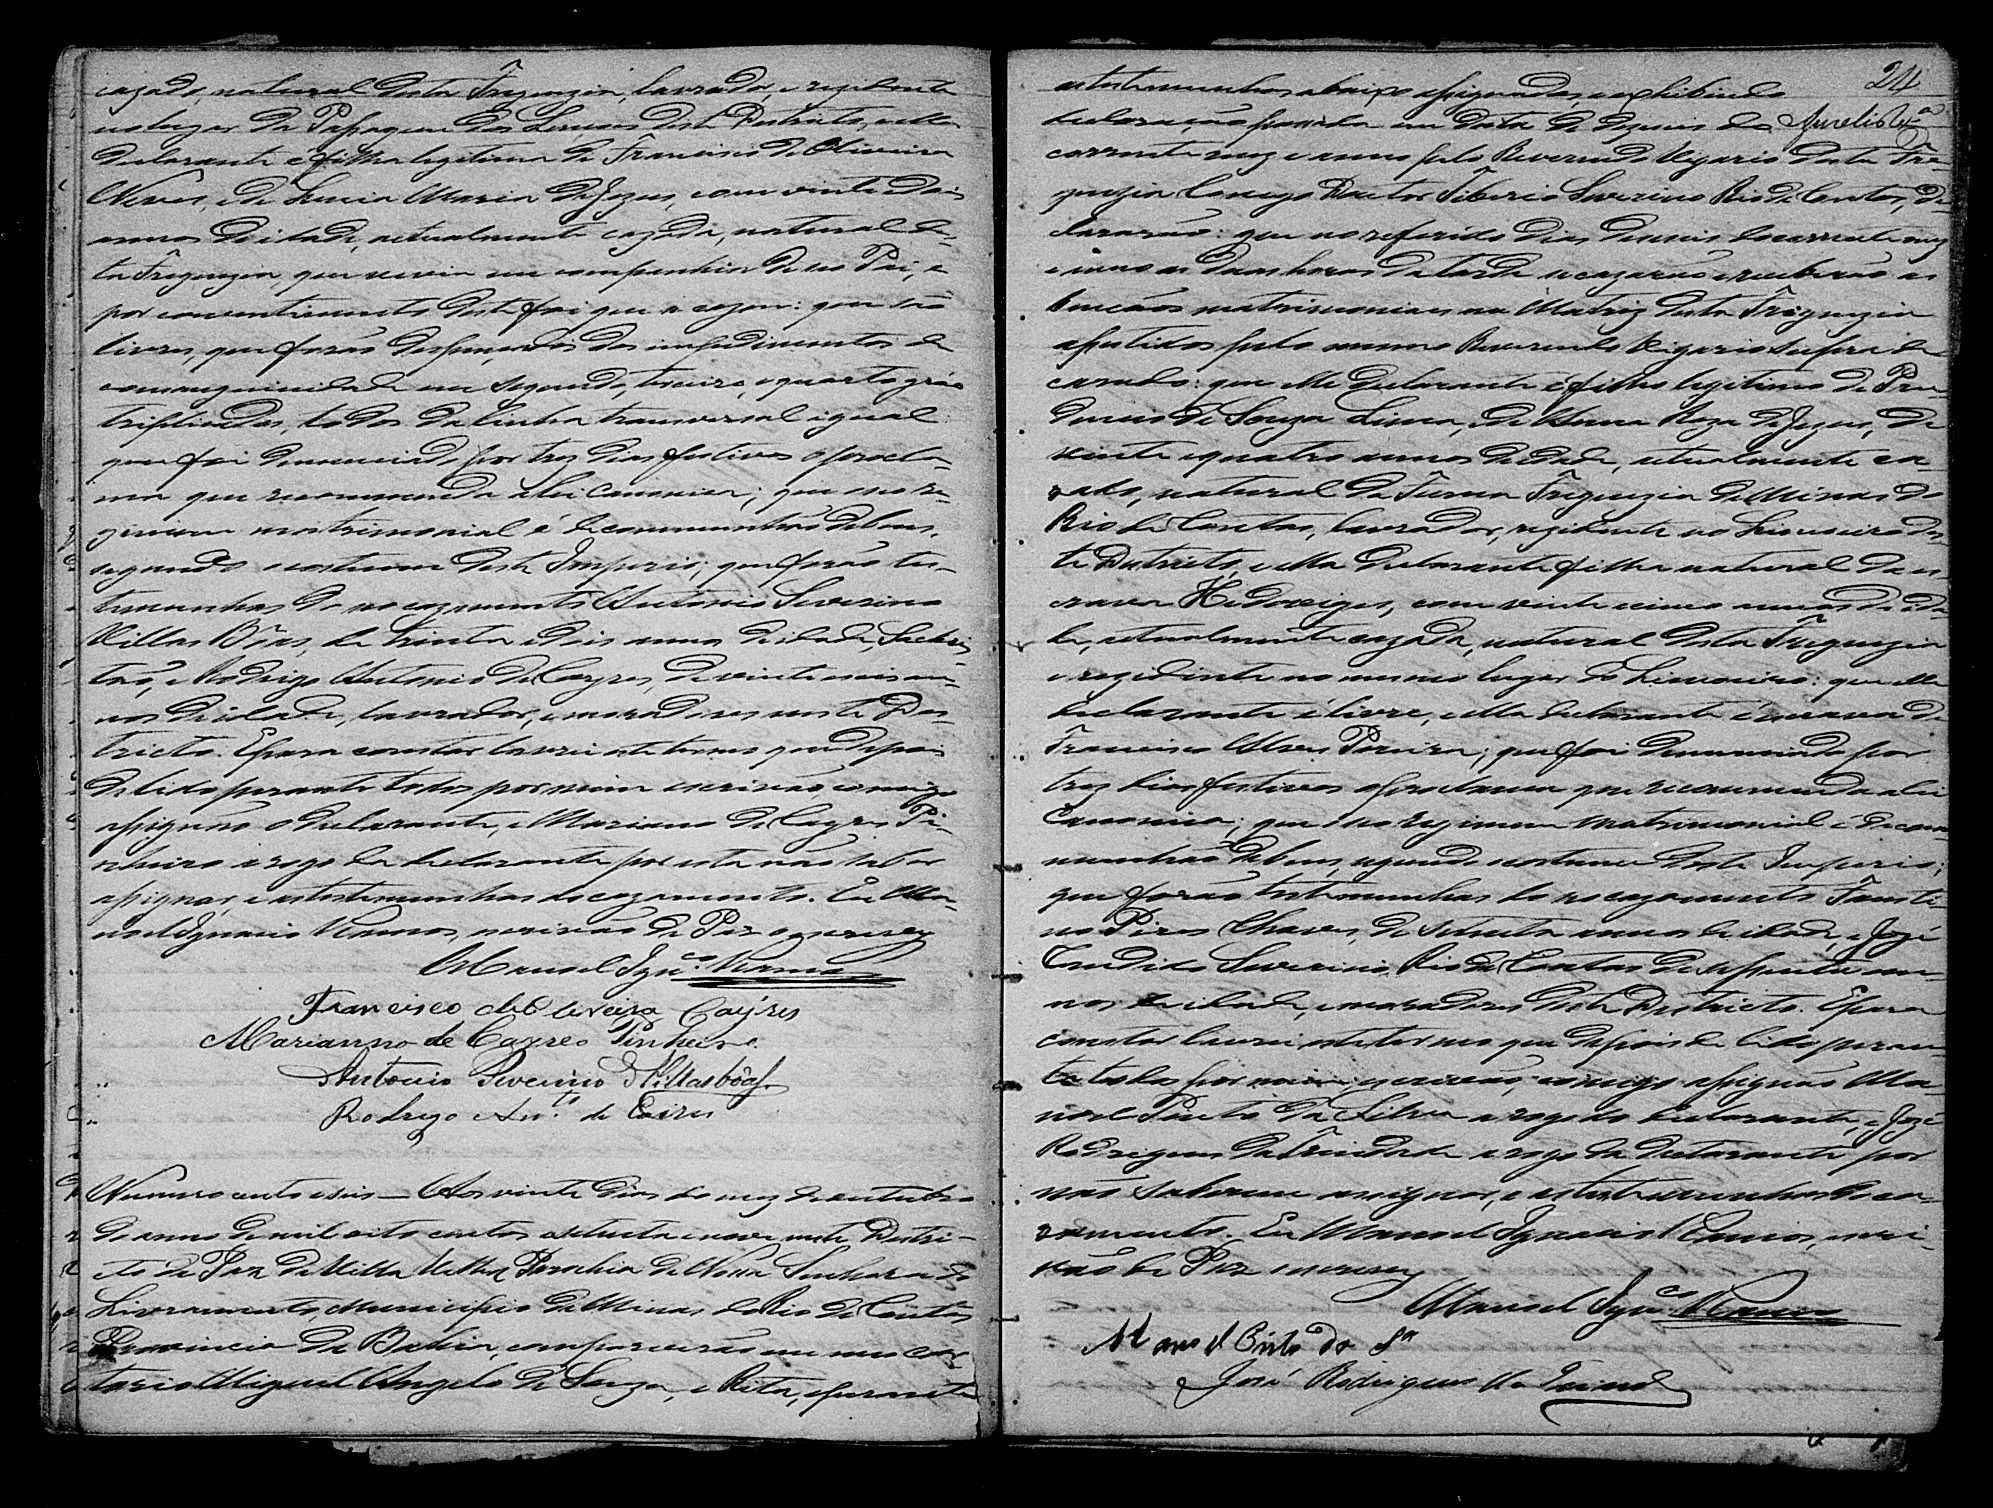 cazado, natural desta Freguezia, lavrador, e rezidente
no lugar da Passagem dos        deste Districto, e ella
declarante é filha legitima de Francisco de Oliveira
Neves, e de Lucia Maria de Jezus, com vinte dois
annos de idade, actualmente cazada, natural des-
ta Freguezia, que vivia em companhia de seo Pai, e
por consentimento deste foi que a cazou: que são
livres, que forão dispensados dos impedimentos de
consanguinidade em segundo, terceiro, e quarto gráo
triplicados, todos da linha transversal igual
que foi denunciado por tres dias festivos o procla-
ma que recommenda a lei canonica; que o seo re-
gimem matrimonial é de communhão de bens,
segundo o costume deste Imperio; que forão tes-
temunhas do seo cazamento Antonio Severino
Villas Bôas, de trinta e dois annos de idade, Sachris-
tão, e Rodrigo Antonio de Cayres, de vinte e seis an-
nos de idade, lavrador, e moradores neste Dis-
tricto. E para constar lavrei este termo que depois
de lido perante todos por mim escrivão comigo
assignão o declarante, e Marianno de Cayres Pi-
nheiro a rogo da declarante por esta não saber
assignar, e as testemunhas do cazamento. Eu Ma-
noel Ignacio Ramos, escrivão de Paz o escrevy
Manoel Ign.co Ramos
Francisco de Oliveira Cayres
Marianno de Cayres Pinheiro
Antonio Severino d Villasbôas
Rodrigo An.to de Caires
Numero cento e seis — Aos vinte dias do mez de outubro
do anno de mil oito centos e oitenta e nove neste Distri-
cto de Paz da Villa Velha, Parochia de Nossa Senhora do
Livramento, Municipio de Minas do Rio de Contas
Provincia da Bahia, comparecerão em meo car-
torio Miguel Angelo de Souza, e Rita, e perante
24
as testemunhas abaixo assignadas, e exhibindo
declaração passada em data de dezeseis do
corrente mez e anno pelo Reverendo Vigario desta Fre-
guezia Conego Doutor Tiberio Severino Rio de Contas, de-
clararão: que no referido dia dezeseis do corrente mez
e anno as duas horas da tarde se cazarão e receberão as
bençãos matrimoniaes na Matriz desta Freguezia
assistidos pelo mesmo Reverendo Vigario supra de-
clarado: que elle declarante é filho legitimo de Pru-
dencio de Souza Lima, e de Anna Roza de Jezus, de
vinte e quatro annos de idade, actualmente ca-
zado, natural da        Freguezia de Minas do
Rio de Contas, lavrador, rezidente no Limoeiro des-
te Districto, e ella declarante filha natural da es-
crava Hedoviges, com vinte e cinco annos de ida-
de, actualmente cazada, natural desta Freguezia
e rezidente no mesmo lugar do Limoeiro: que elle
declarante é livre, e ella declarante é escrava de
Francisco Alves Pereira; que foi denunciado por
tres dias festivos o proclama que recommenda a lei
Canonica; que o seo regimem matrimonial é de com-
munhão de bens, segundo o costume deste Imperio;
que forão testemunhas do seo cazamento Fausti-
no Pires Chaves, de trinta annos de idade, e José
Candido Severino Rio de Contas de sessenta an-
nos de idade, e moradores deste Districto. E para
constar lavrei este termo que depois de lido peran-
te todos por mim escrivão, comigo assignão Ma-
noel Pinto da Silva a rogo do declarante, e José
Rodrigues da Trindade a rogo da declarante por
não saberem assignar, e as testemunhas do ca-
zamento. Eu Manoel Ignacio Ramos, escri-
vão de Paz escrevy
Manoel Ign.co Ramos
Manoel Pinto da S.a
José Rodrigues da Trind.e